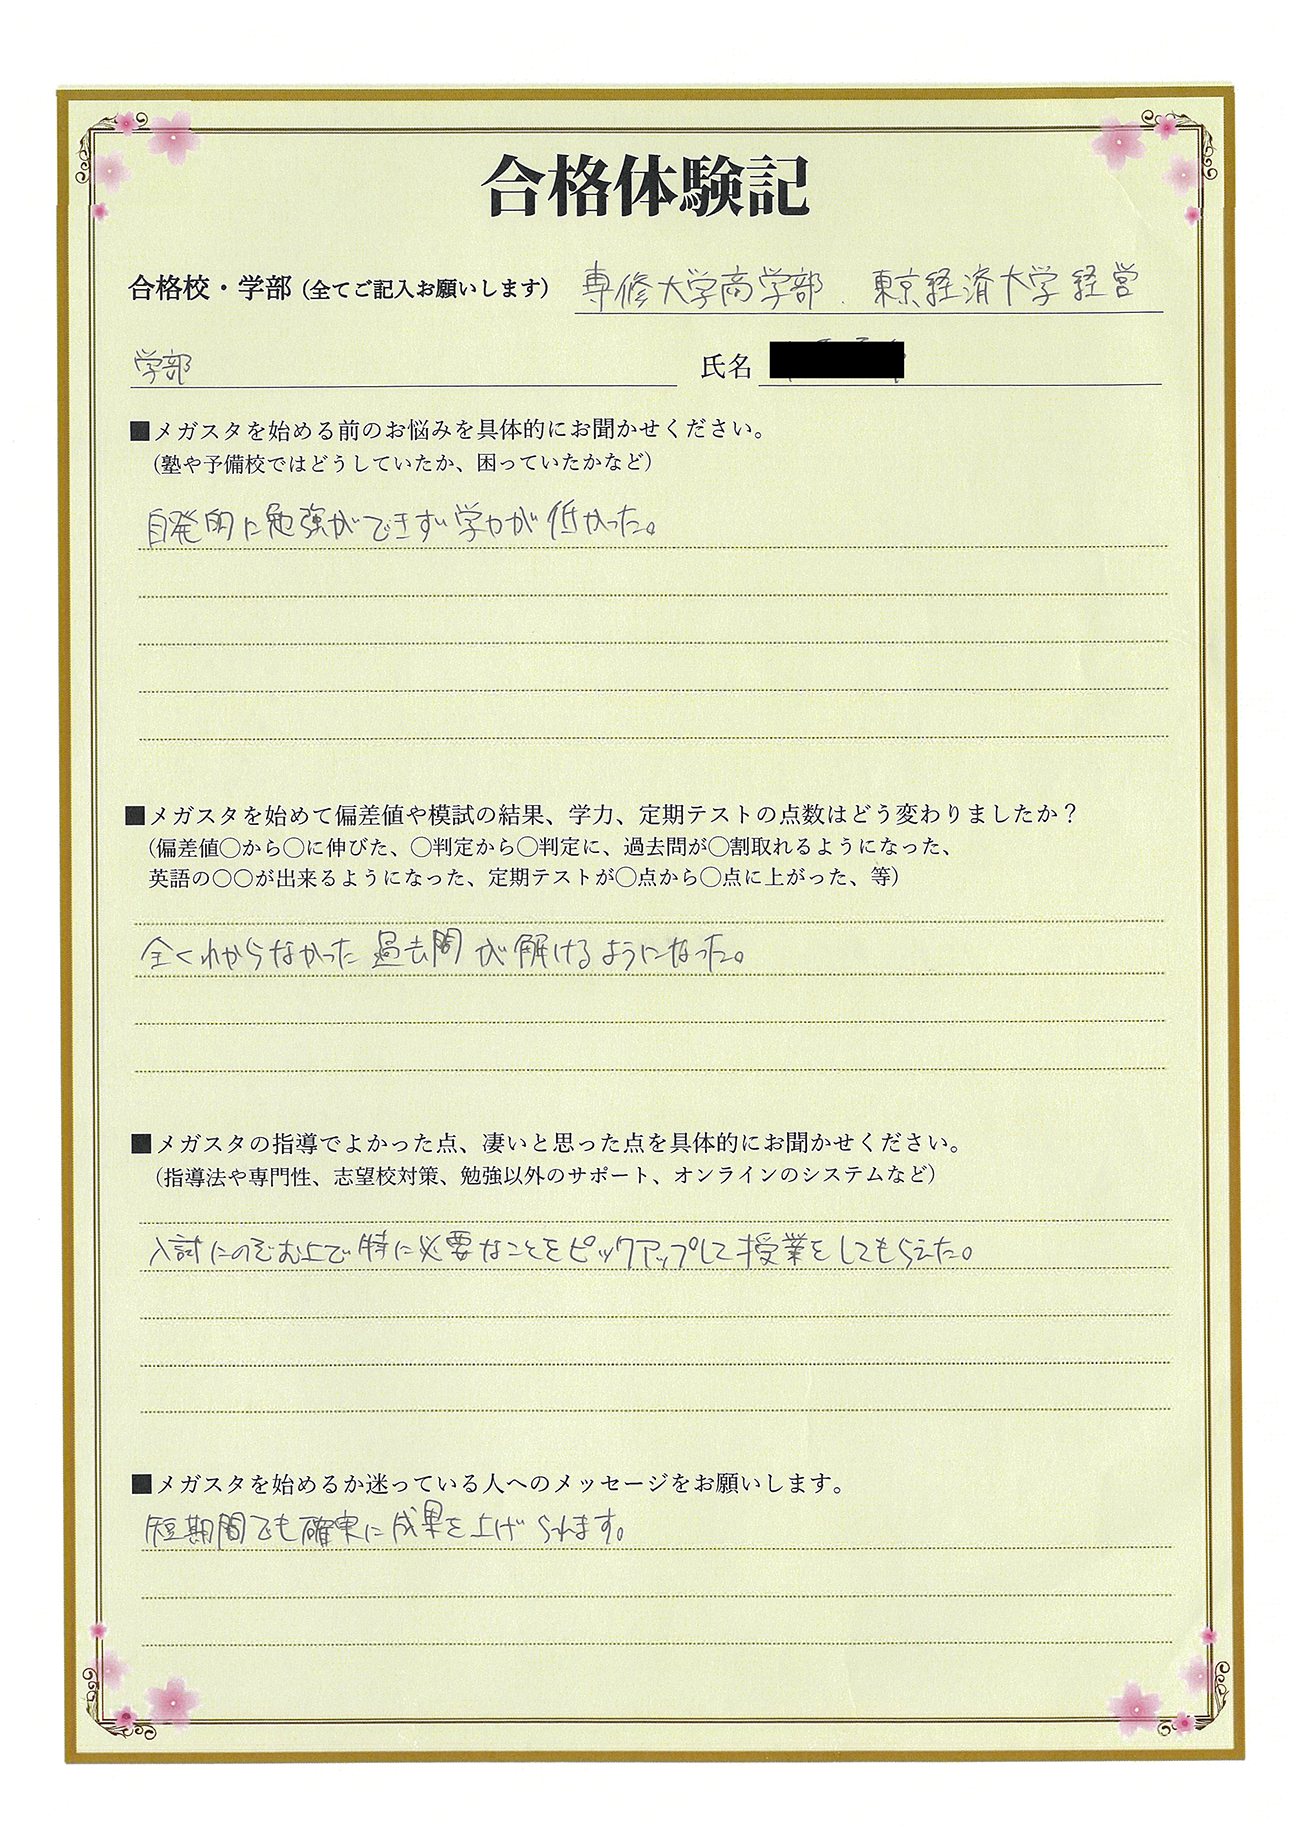 合格体験記
合格校・学部（全てご記入お願いします） 専修大学商学部、東京経済大学経営
学部 氏名
■メガスタを始める前のお悩みを具体的にお聞かせください。
（塾や予備校ではどうしていたか、困っていたかなど）
自発的に勉強ができず学力が低かった。
■メガスタを始めて偏差値や模試の結果、学力、定期テストの点数はどう変わりましたか？
（偏差値〇から〇に伸びた、〇判定から〇判定に、過去問が〇割取れるようになった、
英語の〇〇が出来るようになった、定期テストが〇点から〇点に上がった、等）
全くわからなかった過去問が解けるようになった。
■メガスタの指導でよかった点、凄いと思った点を具体的にお聞かせください。
（指導法や専門性、志望校対策、勉強以外のサポート、オンラインのシステムなど）
入試にのぞむ上で特に必要なことをピックアップして授業をしてもらえた。
■メガスタを始めるか迷っている人へのメッセージをお願いします。
短期間でも確実に成果を上げられます。